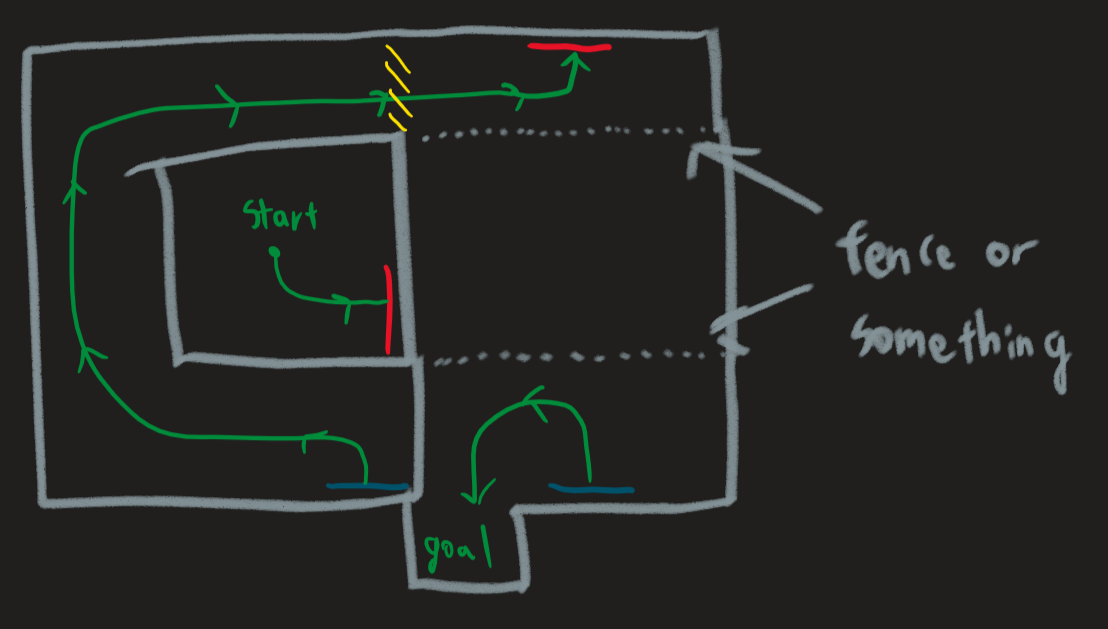 Start
fence or
something
goal